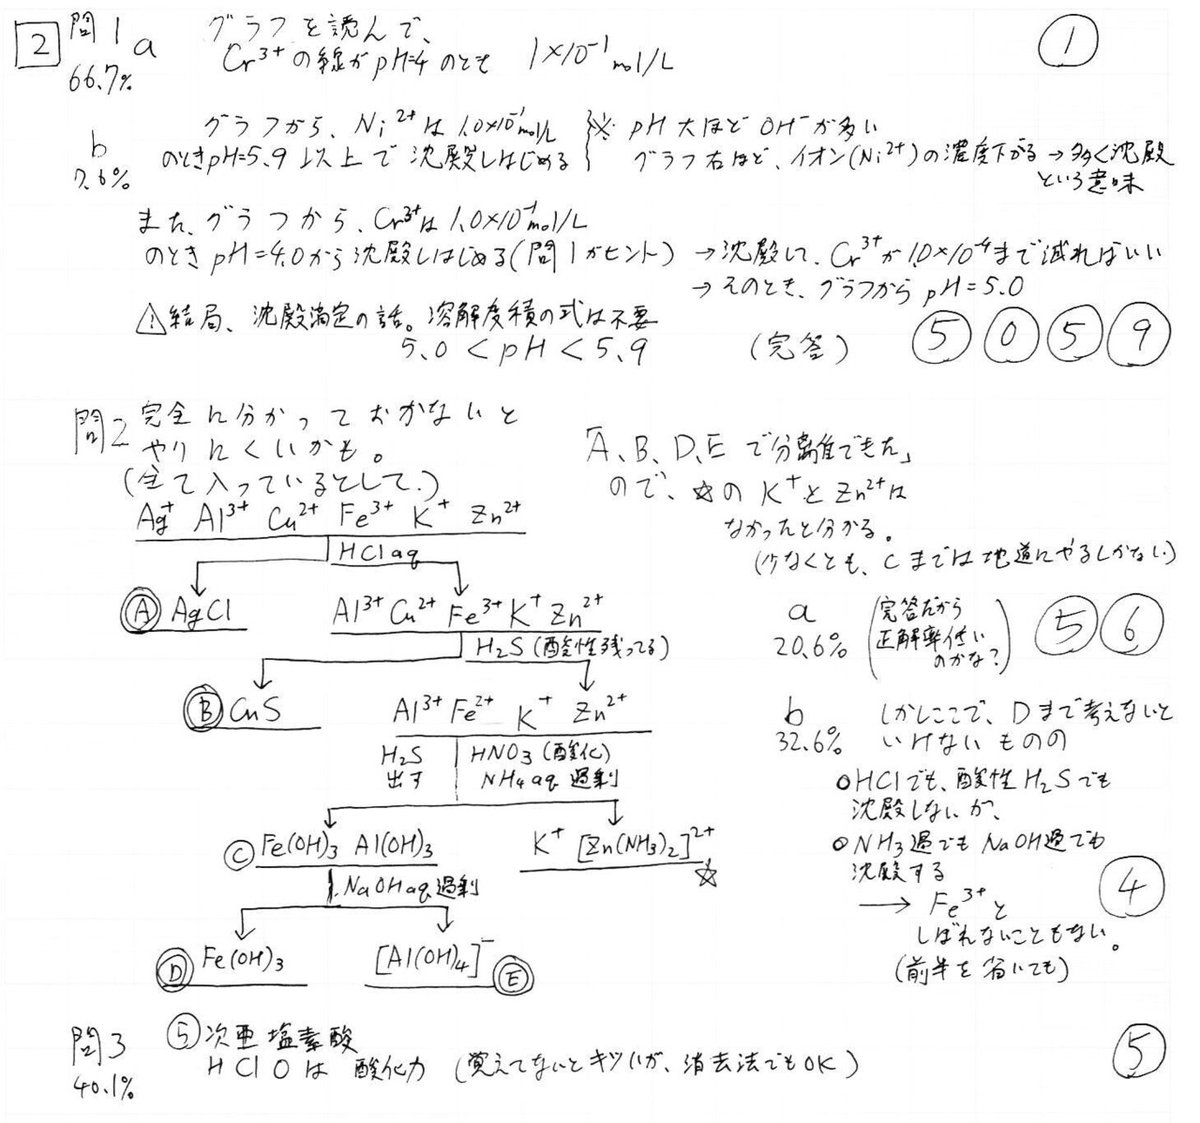 2 問1 a グラフを読んで、
Cr³⁺の線がpH=4のとき 1×10⁻¹ mol/L ①
66.7%
b グラフから、Ni²⁺は1.0×10⁻¹mol/L
のときpH=5.9以上で沈殿しはじめる
7.6%
※ pH大ほどOH⁻が多い
グラフ右ほど、イオン(Ni²⁺)の濃度下がる→多く沈殿
という意味
また、グラフから、Cr³⁺は1.0×10⁻¹mol/L
のときpH=4.0から沈殿しはじめる(問1がヒント) →沈殿して、Cr³⁺が1.0×10⁻⁴まで減ればいい
→そのとき、グラフからpH=5.0
⚠結局、沈殿滴定の話。溶解度積の式は不要
5.0<pH<5.9 (完答) ⑤⓪⑤⑨
問2 完全に分かっておかないと
やりにくいかも。
(全て入っているとして。)
Ag⁺ Al³⁺ Cu²⁺ Fe³⁺ K⁺ Zn²⁺
HClaq
Ⓐ AgCl Al³⁺ Cu²⁺ Fe³⁺ K⁺ Zn²⁺
H₂S(酸性残ってる)
Ⓑ CuS Al³⁺ Fe²⁺ K⁺ Zn²⁺
H₂S 出す
HNO₃(酸化)
NH₄aq 過剰
Ⓒ Fe(OH)₃ Al(OH)₃ K⁺ [Zn(NH₃)₂]²⁺
☆
NaOHaq 過剰
Ⓓ Fe(OH)₃ [Al(OH)₄]⁻ Ⓔ
「A、B、D、Eで分離できた」
ので、☆のK⁺とZn²⁺は
なかったと分かる。
(少なくとも、Cまでは地道にやるしかない)
a
20.6%
(完答だから
正解率低い
のかな?) ⑤⑥
b
32.6%
しかしここで、Dまで考えないと
いけないものの
○HClでも、酸性H₂Sでも
沈殿しないが、
○NH₃過でもNaOH過でも
沈殿する
→ Fe³⁺と ④
しばれないこともない。
(前半を省いても)
問3 ⑤次亜塩素酸
HClOは酸化力 (覚えてないとキツいが、消去法でもOK) ⑤
40.1%